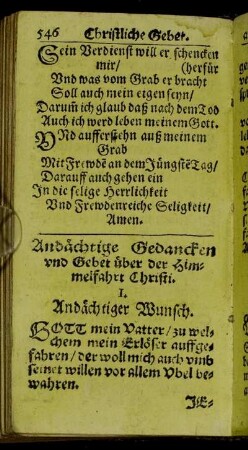 546 Christliche Gebet.
Sein Verdienst will er schencken
mir / (herfür
Vnd was vom Grab er bracht
Soll auch mein eigen seyn /
Darum̃ ich glaub daß nach dem Tod
Auch ich werd leben meinem Gott.
VNd aufferstehn auß meinem
Grab
Mit Frewdẽ an dem Jüngstẽ Tag /
Darauff auch gehen ein
In die selige Herrlichkeit
Vnd Frewdenreiche Seligkeit /
Amen.
Andächtige Gedancken
vnd Gebet über der Him-
melfahrt Christi.
I.
Andächtiger Wunsch.
GOTT mein Vatter / zu wel-
chem mein Erlöser auffge-
fahren / der woll mich auch vmb
seinet willen vor allem Vbel be-
wahren.
JE-